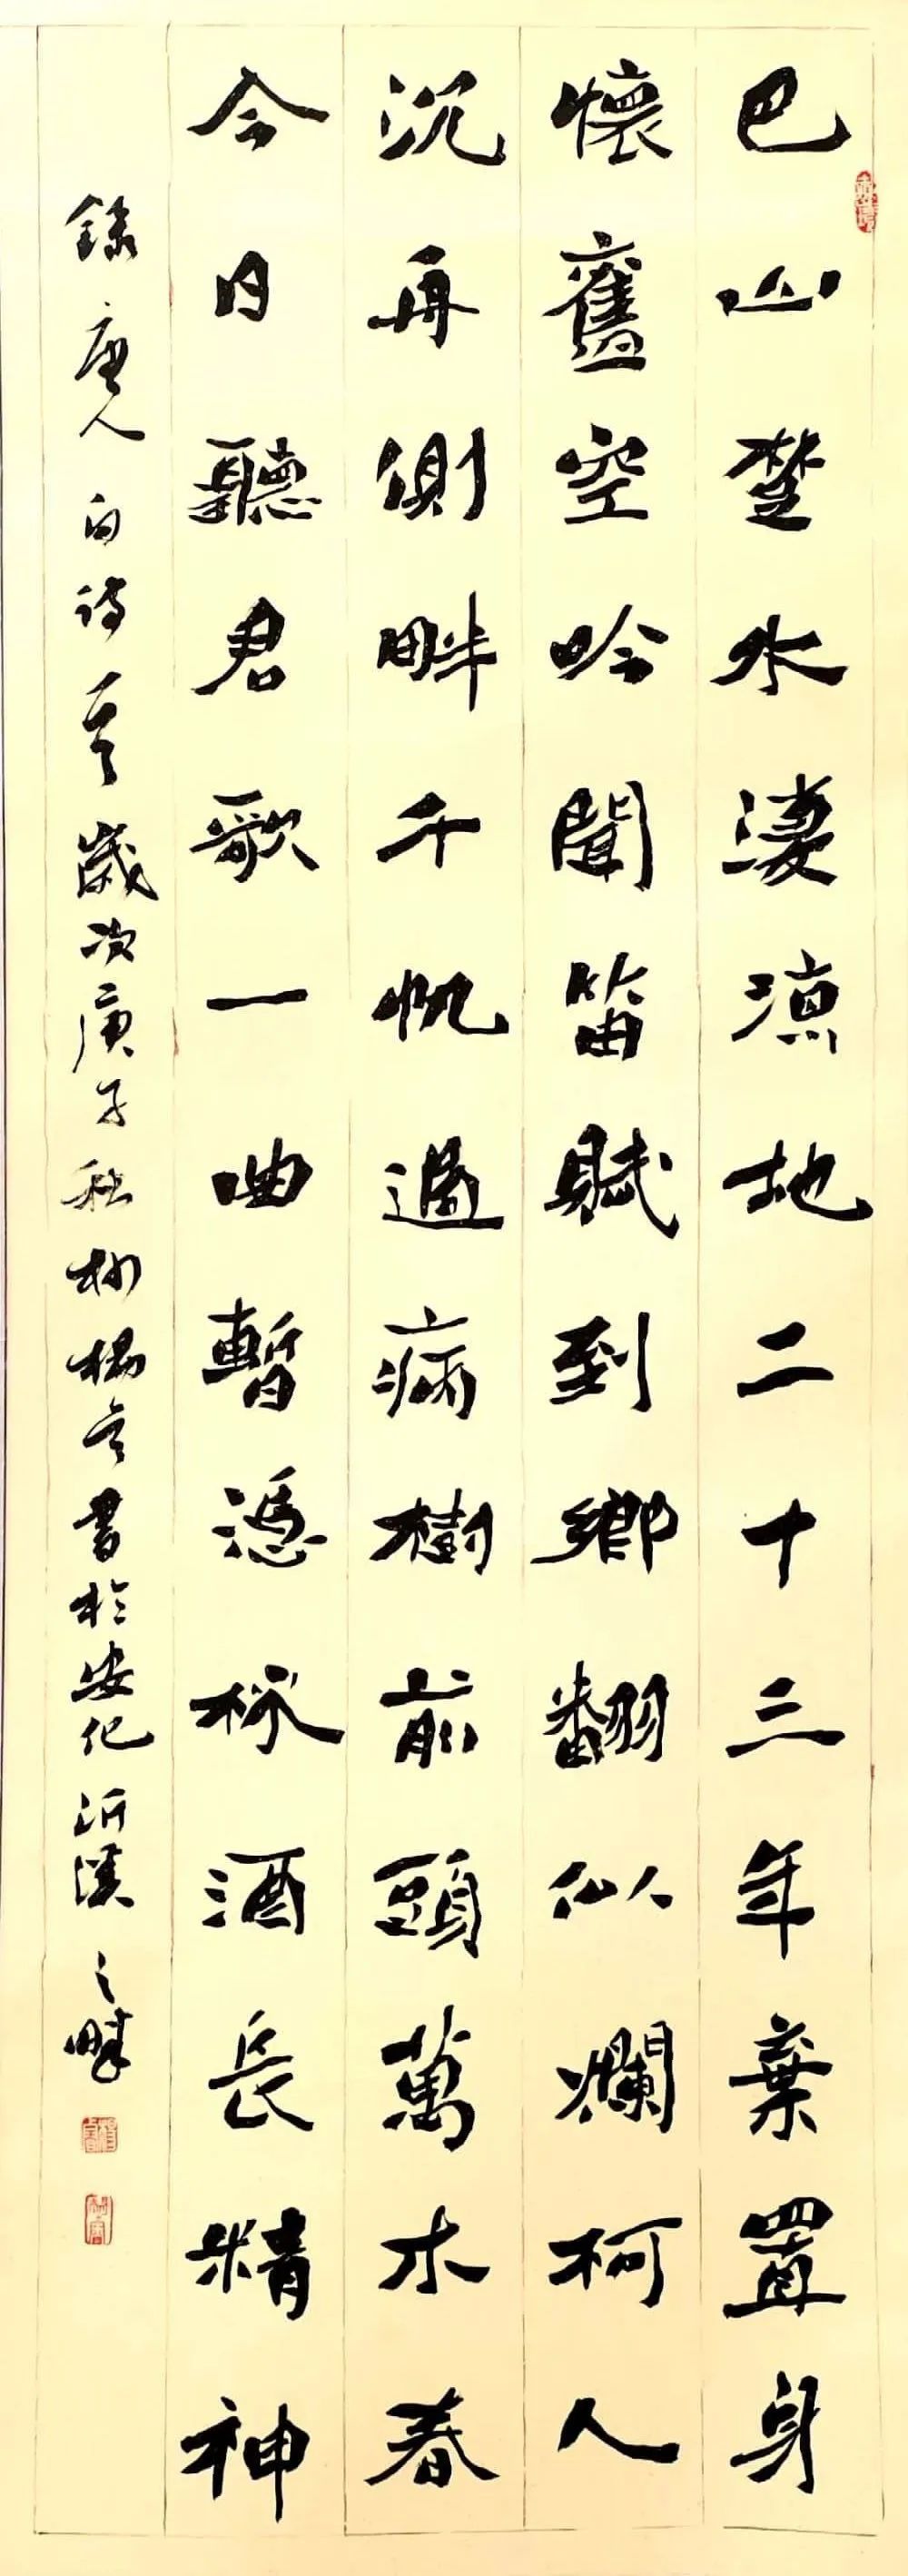 巴山楚水淒涼地二十三年棄置身
懷舊空吟聞笛賦到鄉翻似爛柯人
沉舟側畔千帆過病樹前頭萬木春
今日聽君歌一曲暫憑杯酒長精神
錄唐人詩歲次庚子秋楊書於安化沂溪之畔